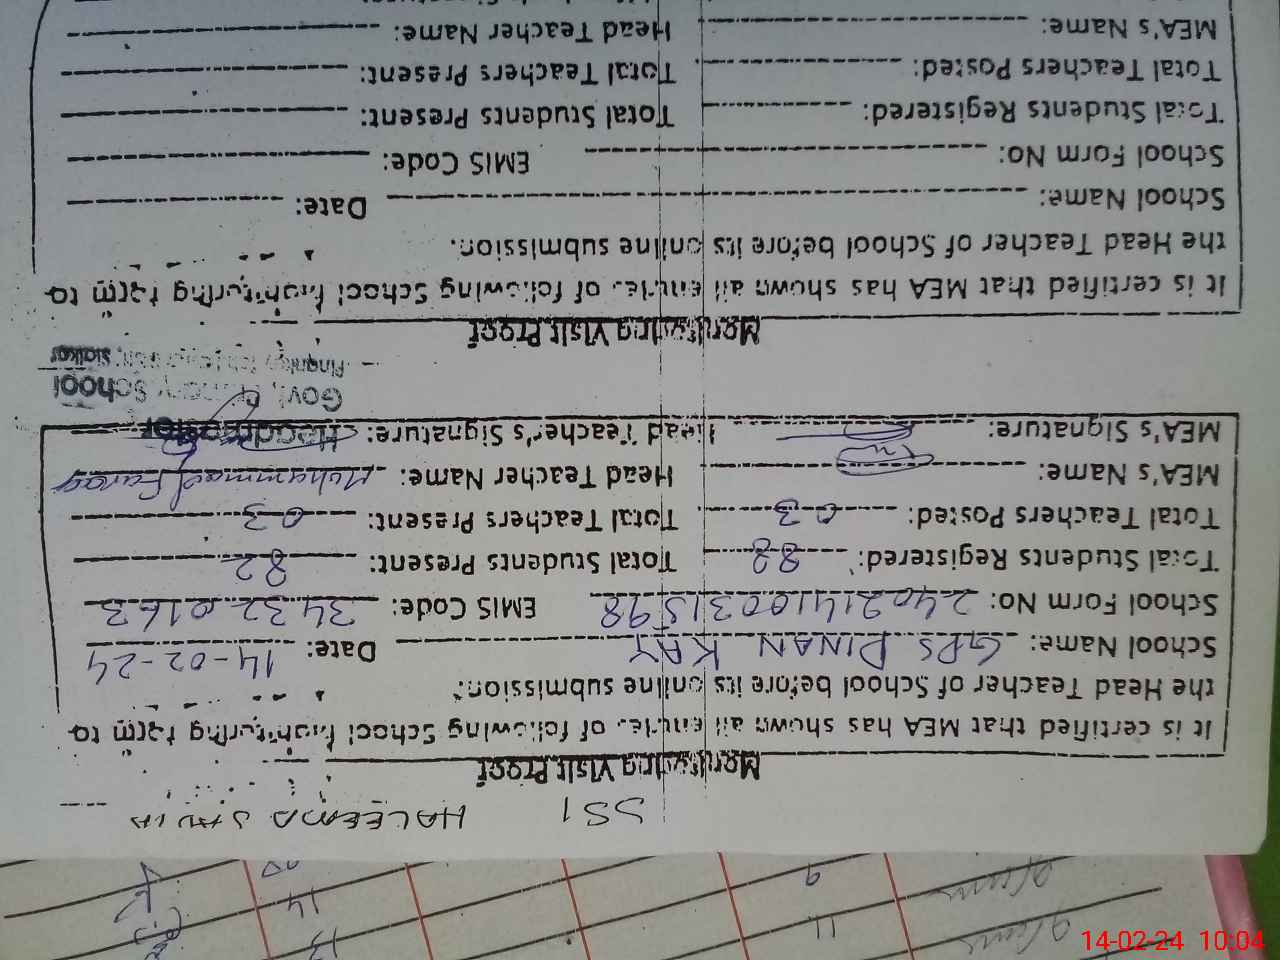 11 9
14
SS1 HALEEMA SADIA
Monitoring Visit Proof
It is certified that MEA has shown all entries of following School Monitoring form to
the Head Teacher of School before its online submission.
School Name: GPS PINAN KAY Date: 14-02-24
School Form No: 24021410031598 EMIS Code: 34320163
Total Students Registered: 88 Total Students Present: 82
Total Teachers Posted: 03 Total Teachers Present: 03
MEA's Name: Head Teacher Name: Muhammad Farooq
MEA's Signature: Head Teacher's Signature: Headmaster
Govt. Primary School
Sialkot
Monitoring Visit Proof
It is certified that MEA has shown all entries of following School Monitoring form to
the Head Teacher of School before its online submission.
School Name: Date:
School Form No: EMIS Code:
Total Students Registered: Total Students Present:
Total Teachers Posted: Total Teachers Present:
MEA's Name: Head Teacher Name:
14-02-24 10:04